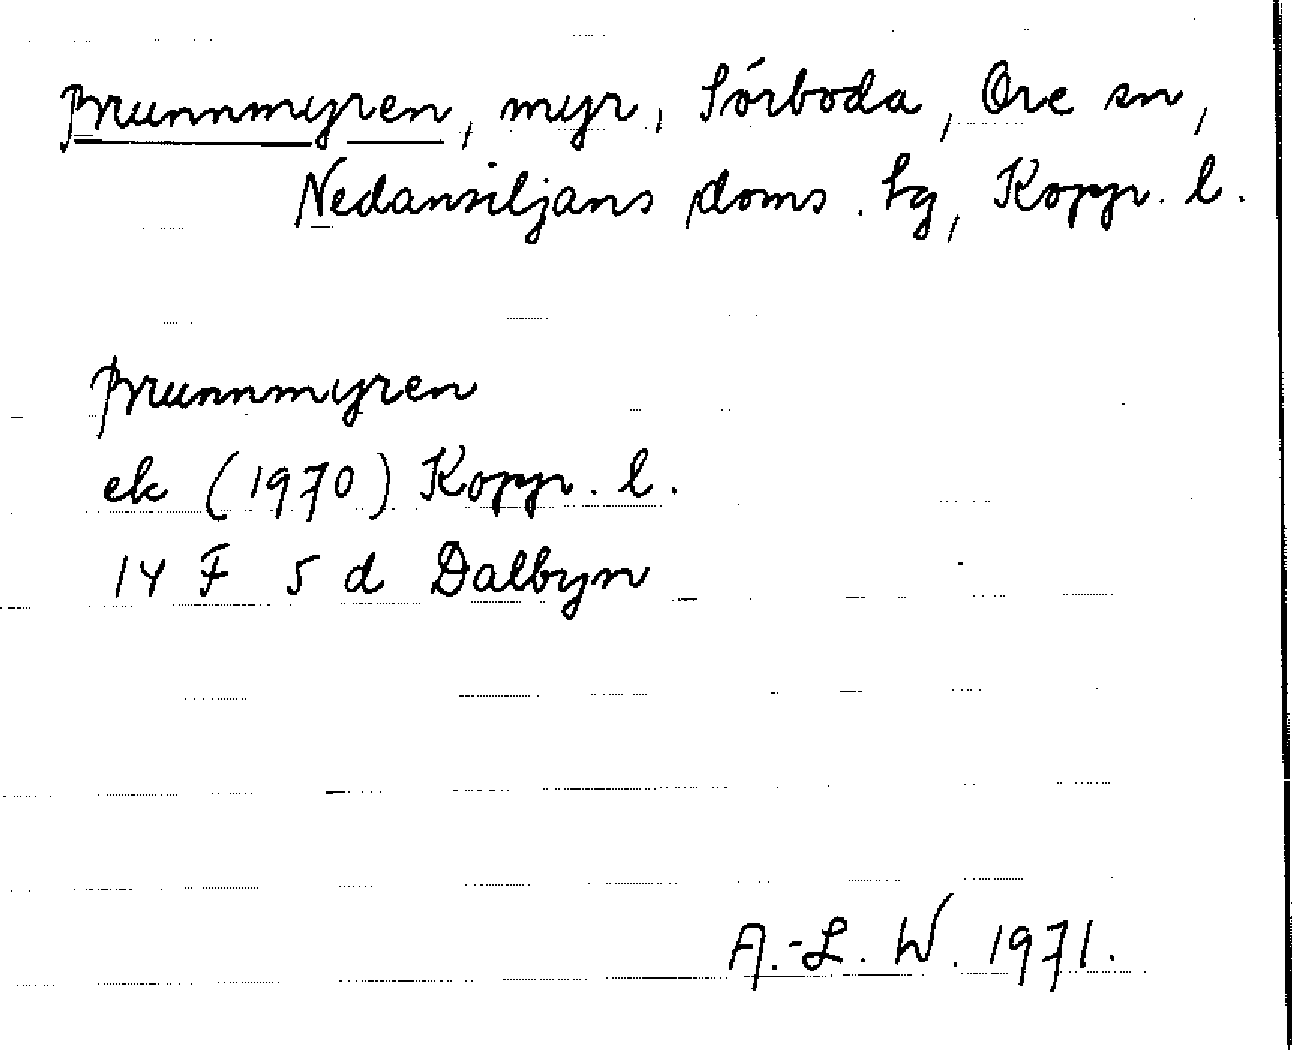 Brunnmyren, myr, Sörboda, Ore sn,
Nedansiljans doms. tg, Kopp. l.
Brunnmyren
ek (1970) Kopp. l.
14 F 5 d Dalbyn
A.-L. W. 1971.